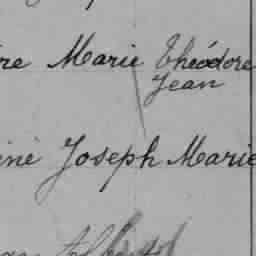 re Marie Théodore
Jean
iné Joseph Marie